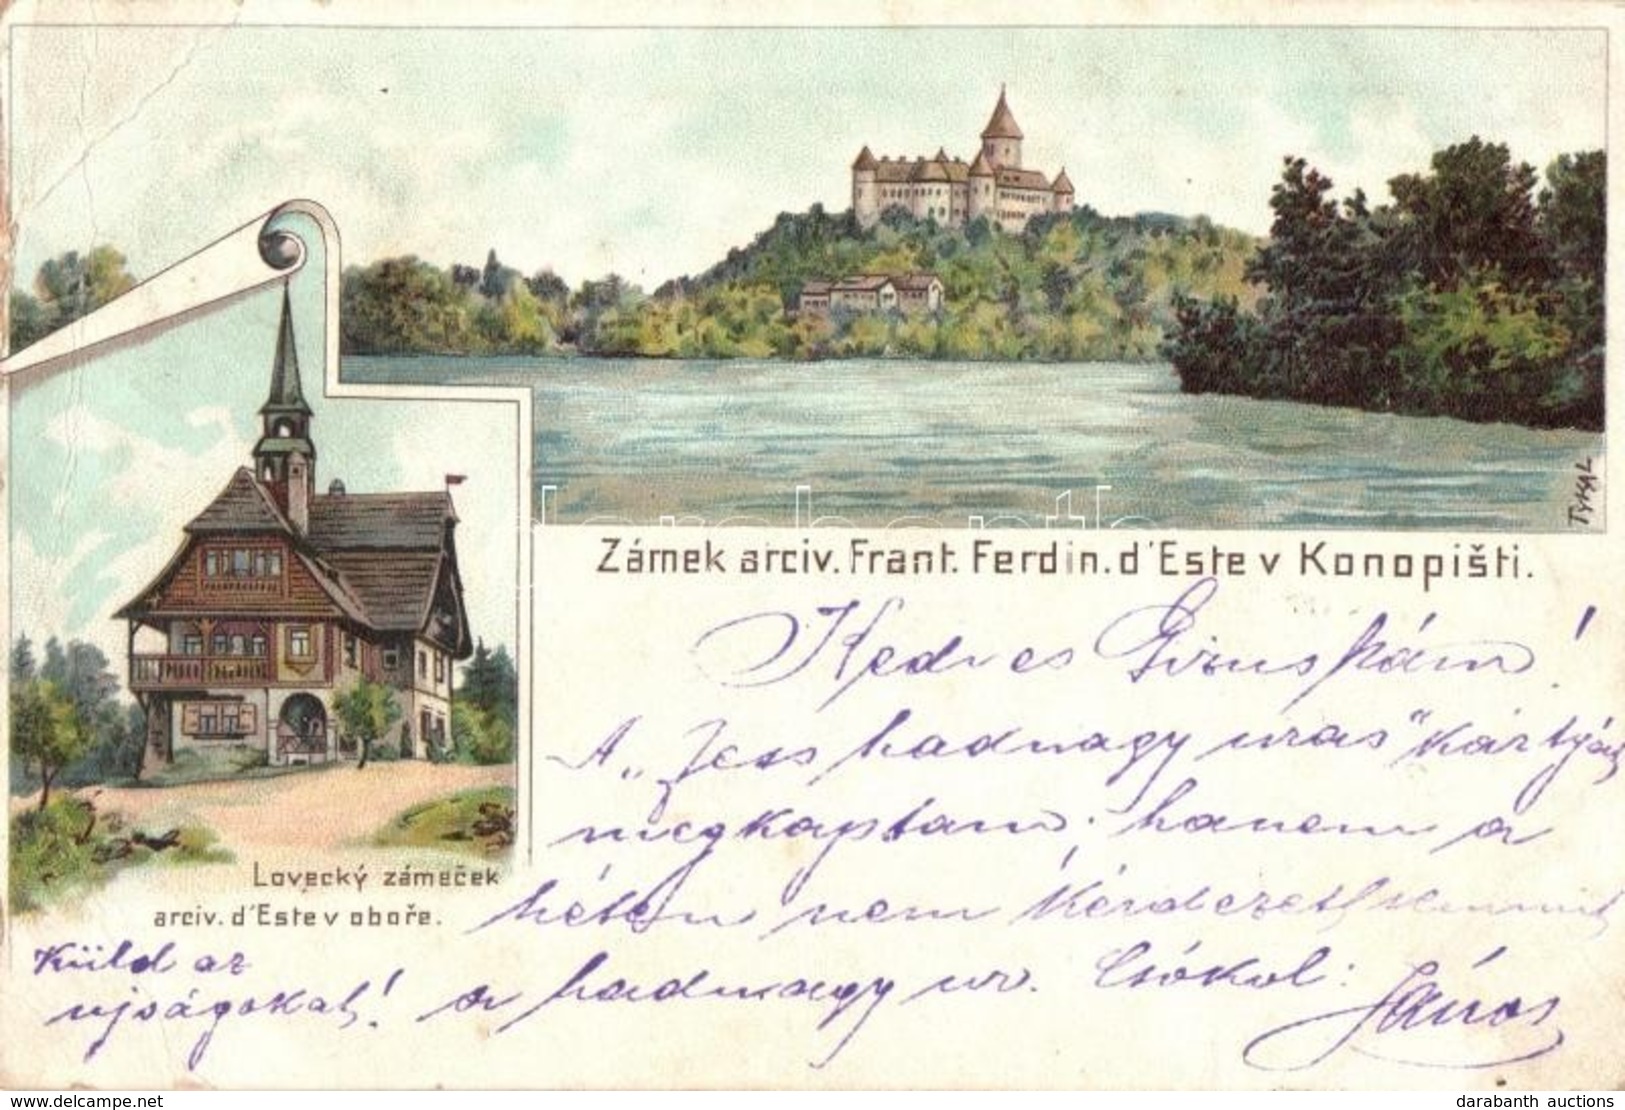 TYKAL
Zámek arciv. Frant. Ferdin. d'Este v Konopišti.
Lovecký zámeček
arciv. d'Este v oboře.
Kedves Gizuskám!
A „Jess hadnagy uras" kártyát
megkaptam; hanem a
héten nem kérdezett semmit
a hadnagy ur. Csókol:
János
Küld az
ujságokat!
darabanth
www.delcampe.net
darabanth auctions